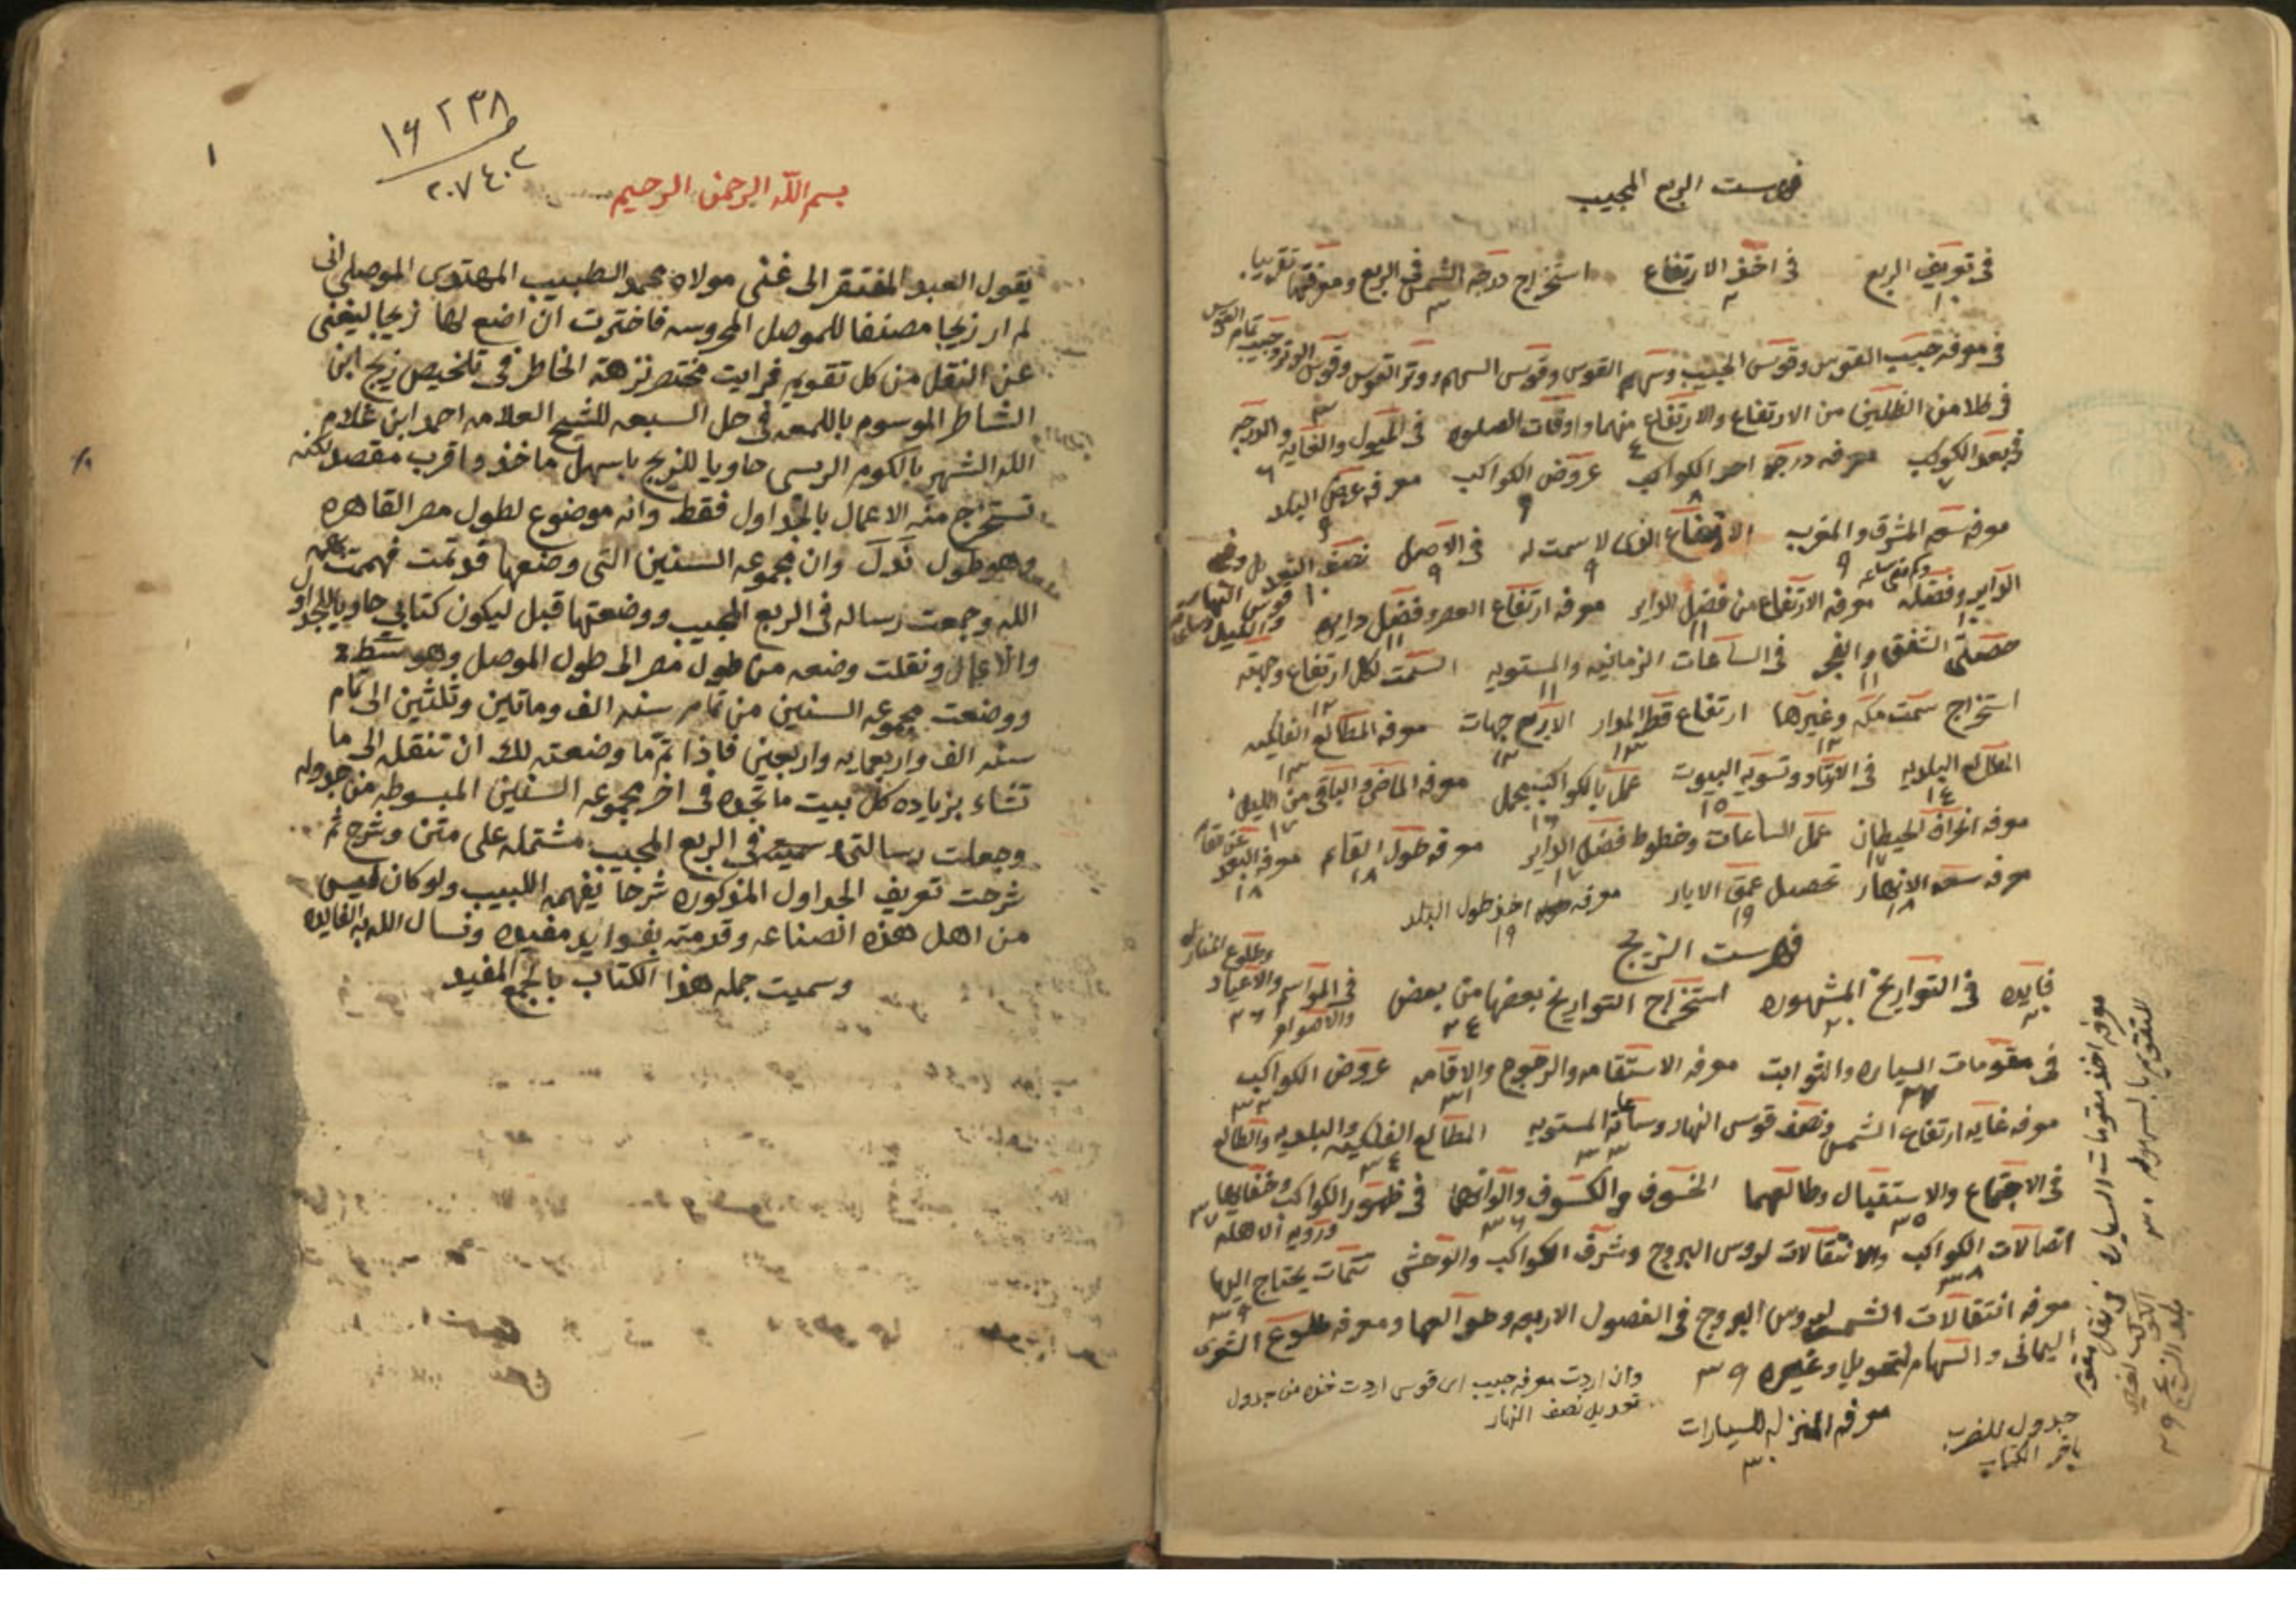 فهرست الربع المجيب
في تعريف الربع في اخذ الارتفاع استخراج درجة الشمس في الربع ومعرفتها تقريبا
١ ٢ ٣
في معرفه جيب القوس وقوس الجيب وسهم القوس وقوس السهم ووتر القوس وقوس الوتر وجيب تمام القوس
٣
في ظلا من الظلين من الارتفاع والارتفاع منهما واوقات الصلوه في الميول والغايه والدرجه
٤ ٦
في بعد الكوكب معرفه درجة احد الكواكب عروض الكواكب معرفه عرض البلد
٧ ٨ ٩ ٩
معرفه سعة المشرق والمغرب الارتفاع الذي لا سمت له في الاصل نصف
٩ ٩ ٩ ١٠
الداير وفضله معرفه الارتفاع من فضل الداير معرفه ارتفاع العصر وفضل دايره قوس النهار والليل
١٠ ١١ ١١
حصتي الشفق والفجر في الساعات الزمانيه والمستويه السمت لكل ارتفاع وجهته
١١ ١١ ١٢
استخراج سمت مكه وغيرها ارتفاع قطر المدار الاربع جهات معرفه المطالع الفلكيه
١٢ ١٣ ١٣ ١٣
المطالع البلديه في الاوتاد وتسوية البيوت عمل بالكواكب مجمل معرفه الماضي والباقي من الليل
١٤ ١٥ ١٦ ١٧
معرفه انحراف الحيطان عمل الساعات وخطوط فضل الداير معرفه طول القايم معرفه البعد
١٧ ١٧ ١٨ ١٨
معرفه سعة الانهار تحصيل عمق الابار معرفه اخذ طول البلد
١٨ ١٩ ١٩
فهرست الزيج
فايده في التواريخ المشهوره استخراج التواريخ بعضها من بعض في المواسم والاعياد
٢٠ ٢٠ ٢٤ ٢٦
وطلوع المنازل
في مقومات السياره والثوابت معرفه الاستقامه والرجوع والاقامه عروض الكواكب
٣١ ٣٢
معرفه غايه ارتفاع الشمس ونصف قوس النهار وساعاته المستويه المطالع الفلكيه والبلديه والطالع
٣٣ ٣٤
في الاجتماع والاستقبال وطالعهما الخسوف والكسوف والوانهما في ظهور الكواكب وخفايها
٣٥ ٣٦ ورويه الاهله ٣٧
اتصالات الكواكب والانتقالات لروس البروج وشرف الكواكب والوحشي تتمات يحتاج اليها
٣٨ ٣٩
معرفه انتقالات الشمس لروس البروج في الفصول الاربعه وطوالعها ومعرفه طلوع الشعرى
اليماني والسهام لتحويل وغيره ٣٩
وان اردت معرفه جيب اي قوس اردت خذه من جدول
تعديل نصف النهار
معرفه المنزله للسيارات
٣٠
جدول للضرب
باخر الكتاب
معرفه اخذ مقومات السياره
للتقويم بالسهوله ٣٠
١
١٦٢٣٨
٢٠٧٤٠٣
بسم الله الرحمن الرحيم
يقول العبد المفتقر الى غنى مولاه محمد الطبيب المهتدي الموصلي اني
لم ار زيجا مصنفا للموصل المحروسه فاخترت ان اضع لها زيجا ليغني
عن النقل من كل تقويم فرايت مختصر نزهة الخاطر في تلخيص زيج ابن
الشاطر الموسوم باللمعه في حل السبعه للشيخ العلامه احمد ابن غلام
الله الشهير بالكوم الريسي حاويا للزيج باسهل ماخذ واقرب مقصد لكنه
تستخرج منه الاعمال بالجداول فقط وانه موضوع لطول مصر القاهره
وهو طول نَدَلَ وان مجموعه السنين التي وضعها قد تمت فهممت بعون
الله وجمعت رساله في الربع المجيب ووضعتها قبل ليكون كتابي حاويا للجداول
والاعمال ونقلت وضعه من طول مصر الى طول الموصل وهو
ووضعت مجموعه السنين من تمام سنه الف وماتين وثلثين الى تمام
سنه الف واربعمايه واربعين فاذا تم ما وضعته لك ان تنقل الى ما
تشاء بزياده كل بيت ما تجده في اخر مجموعه السنين المبسوطه من جدوله
وجعلت رسالتي في الربع المجيب مشتمله على متن وشرح ثم
شرحت تعريف الجداول المذكوره شرحا يفهمه اللبيب ولو كان ليس
من اهل هذه الصناعه وقدمته بفوايد مفيده ونسال الله به الفايده
وسميت جمله هذا الكتاب بالجمع المفيد